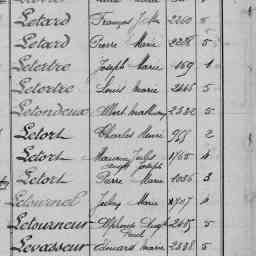 Letard François J. M. 2260 5
Letard Pierre Marie 2256 5
Letertre Joseph Marie 169 1
Letertre Louis Marie 2445 5
Letondeux Albert Mathurin 2332 5
Letort Charles Henri 977 2
Letort Joseph 1765 4
Letort Pierre Marie 1036 3
Letournel Marie 1717 4
Letourneur Alphonse Paul 5
Levasseur Edouard Marie 2338 5